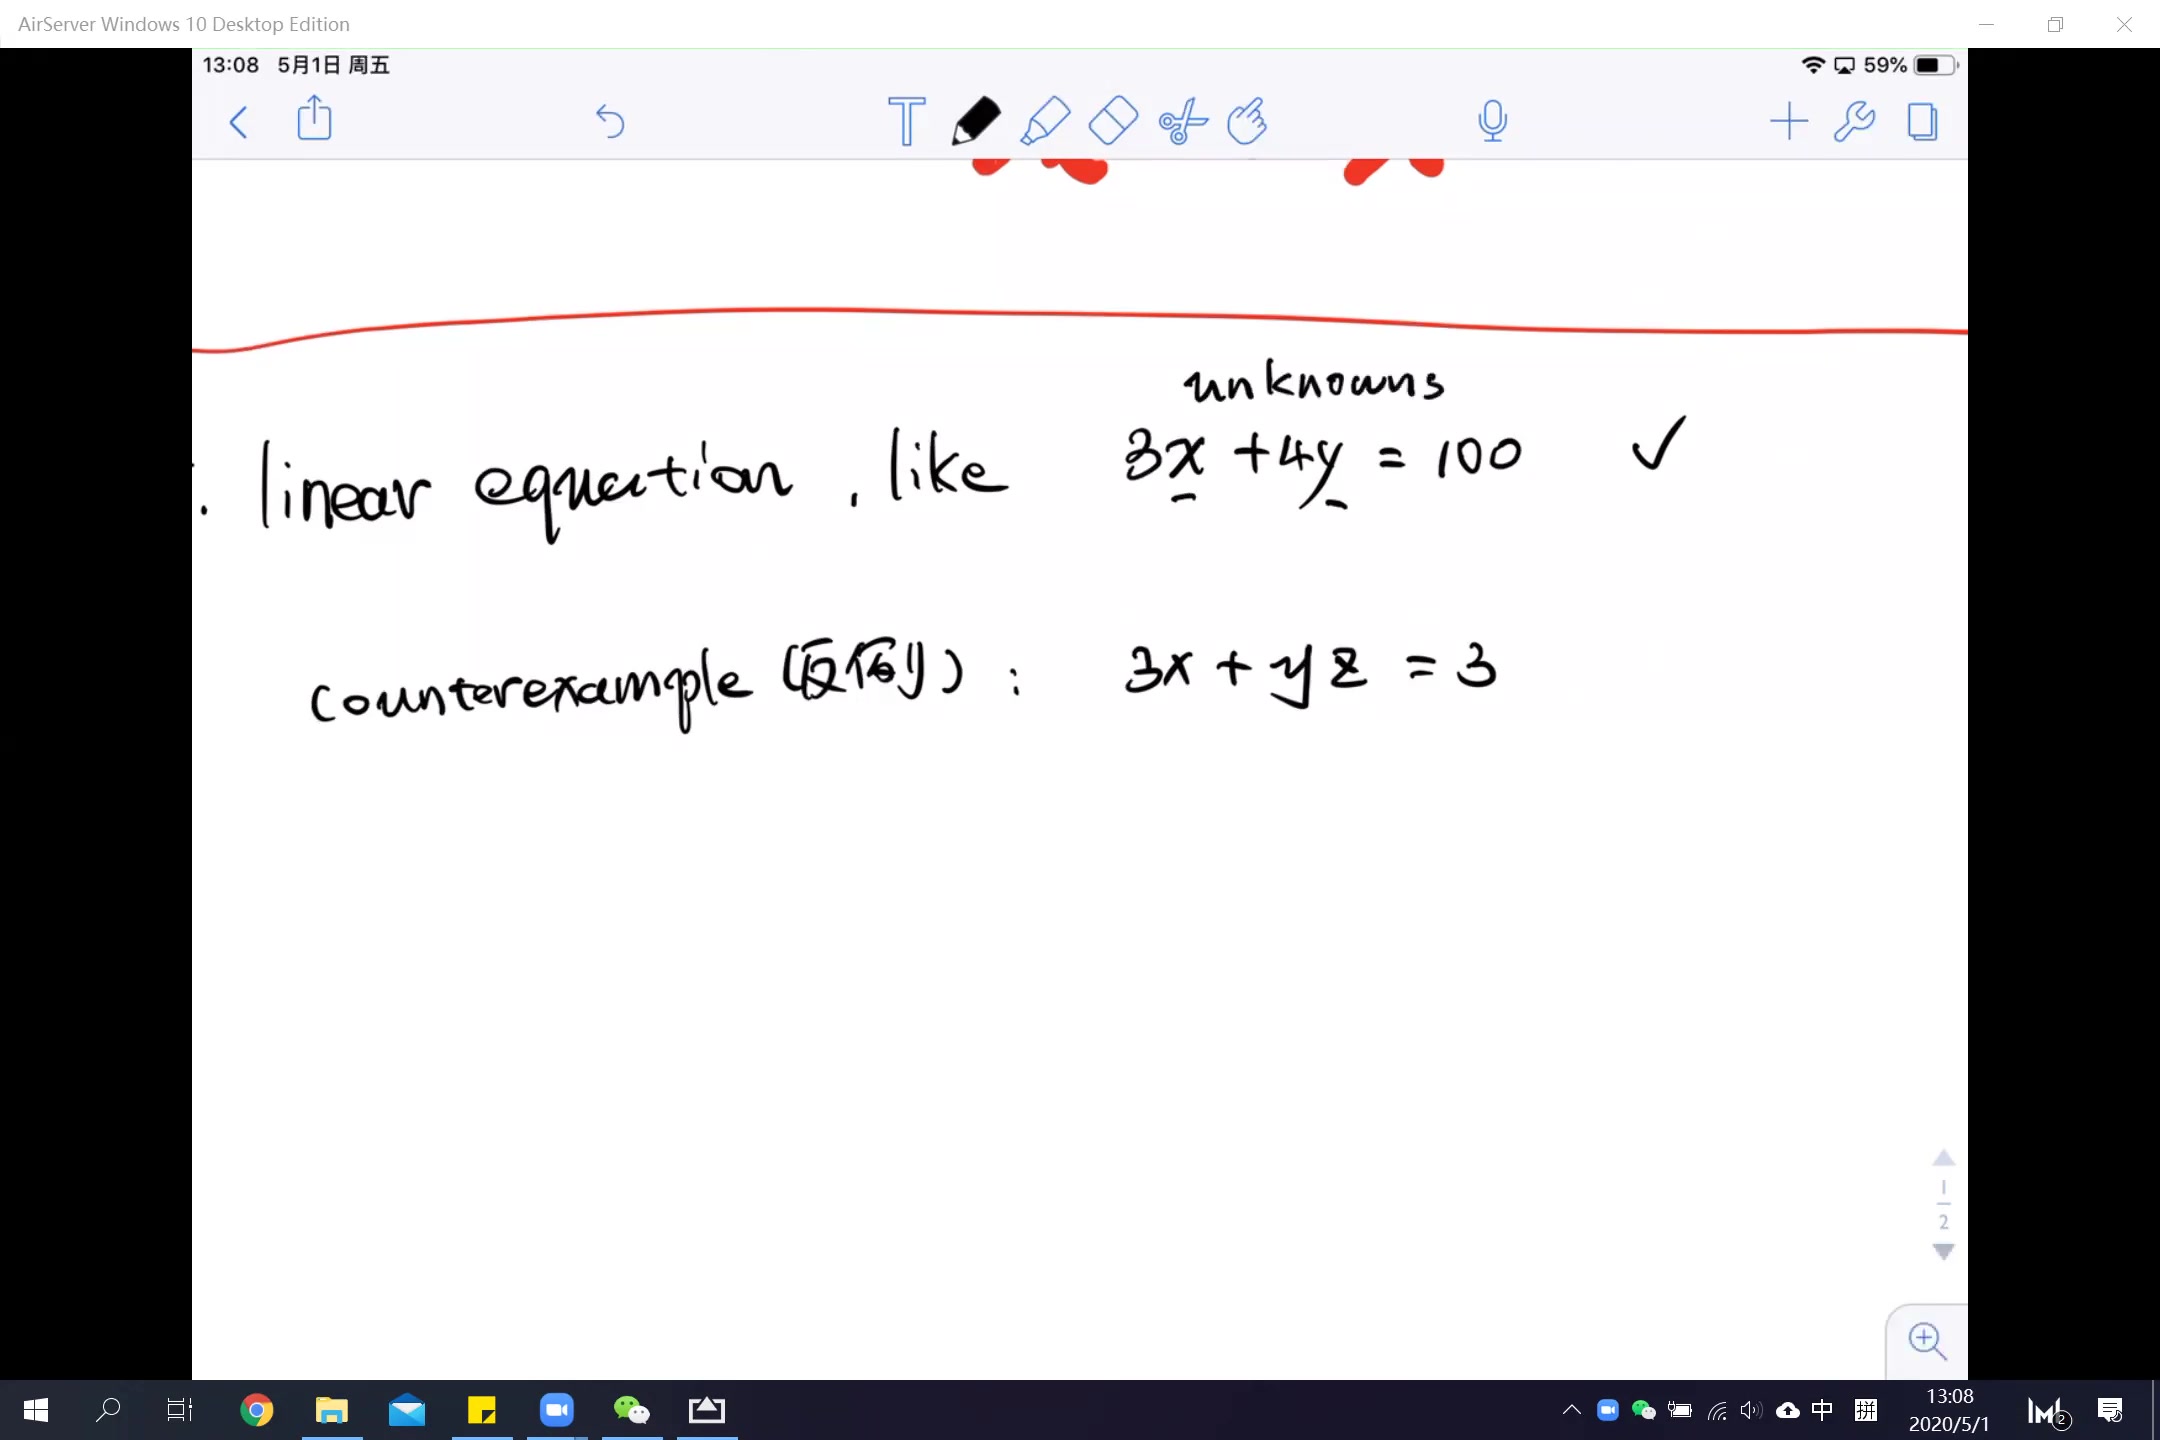 AirServer Windows 10 Desktop Edition
13:08 5月1日 周五 59%
unknowns
linear equation, like 3x + 4y = 100 ✓
counterexample (反例): 3x + yz = 3
1
2
13:08
中 拼
2020/5/1
2